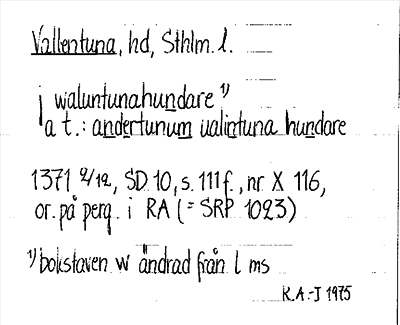 Vallentuna, hd, Sthlm. l.
j waluntunahundare 1)
a t.: andertunum ualintuna hundare
1371 2/12, SD 10, s. 111 f., nr X 116,
or. på perg. i RA (= SRP 1023)
1) bokstaven w ändrad från l ms
R.A.-J 1975